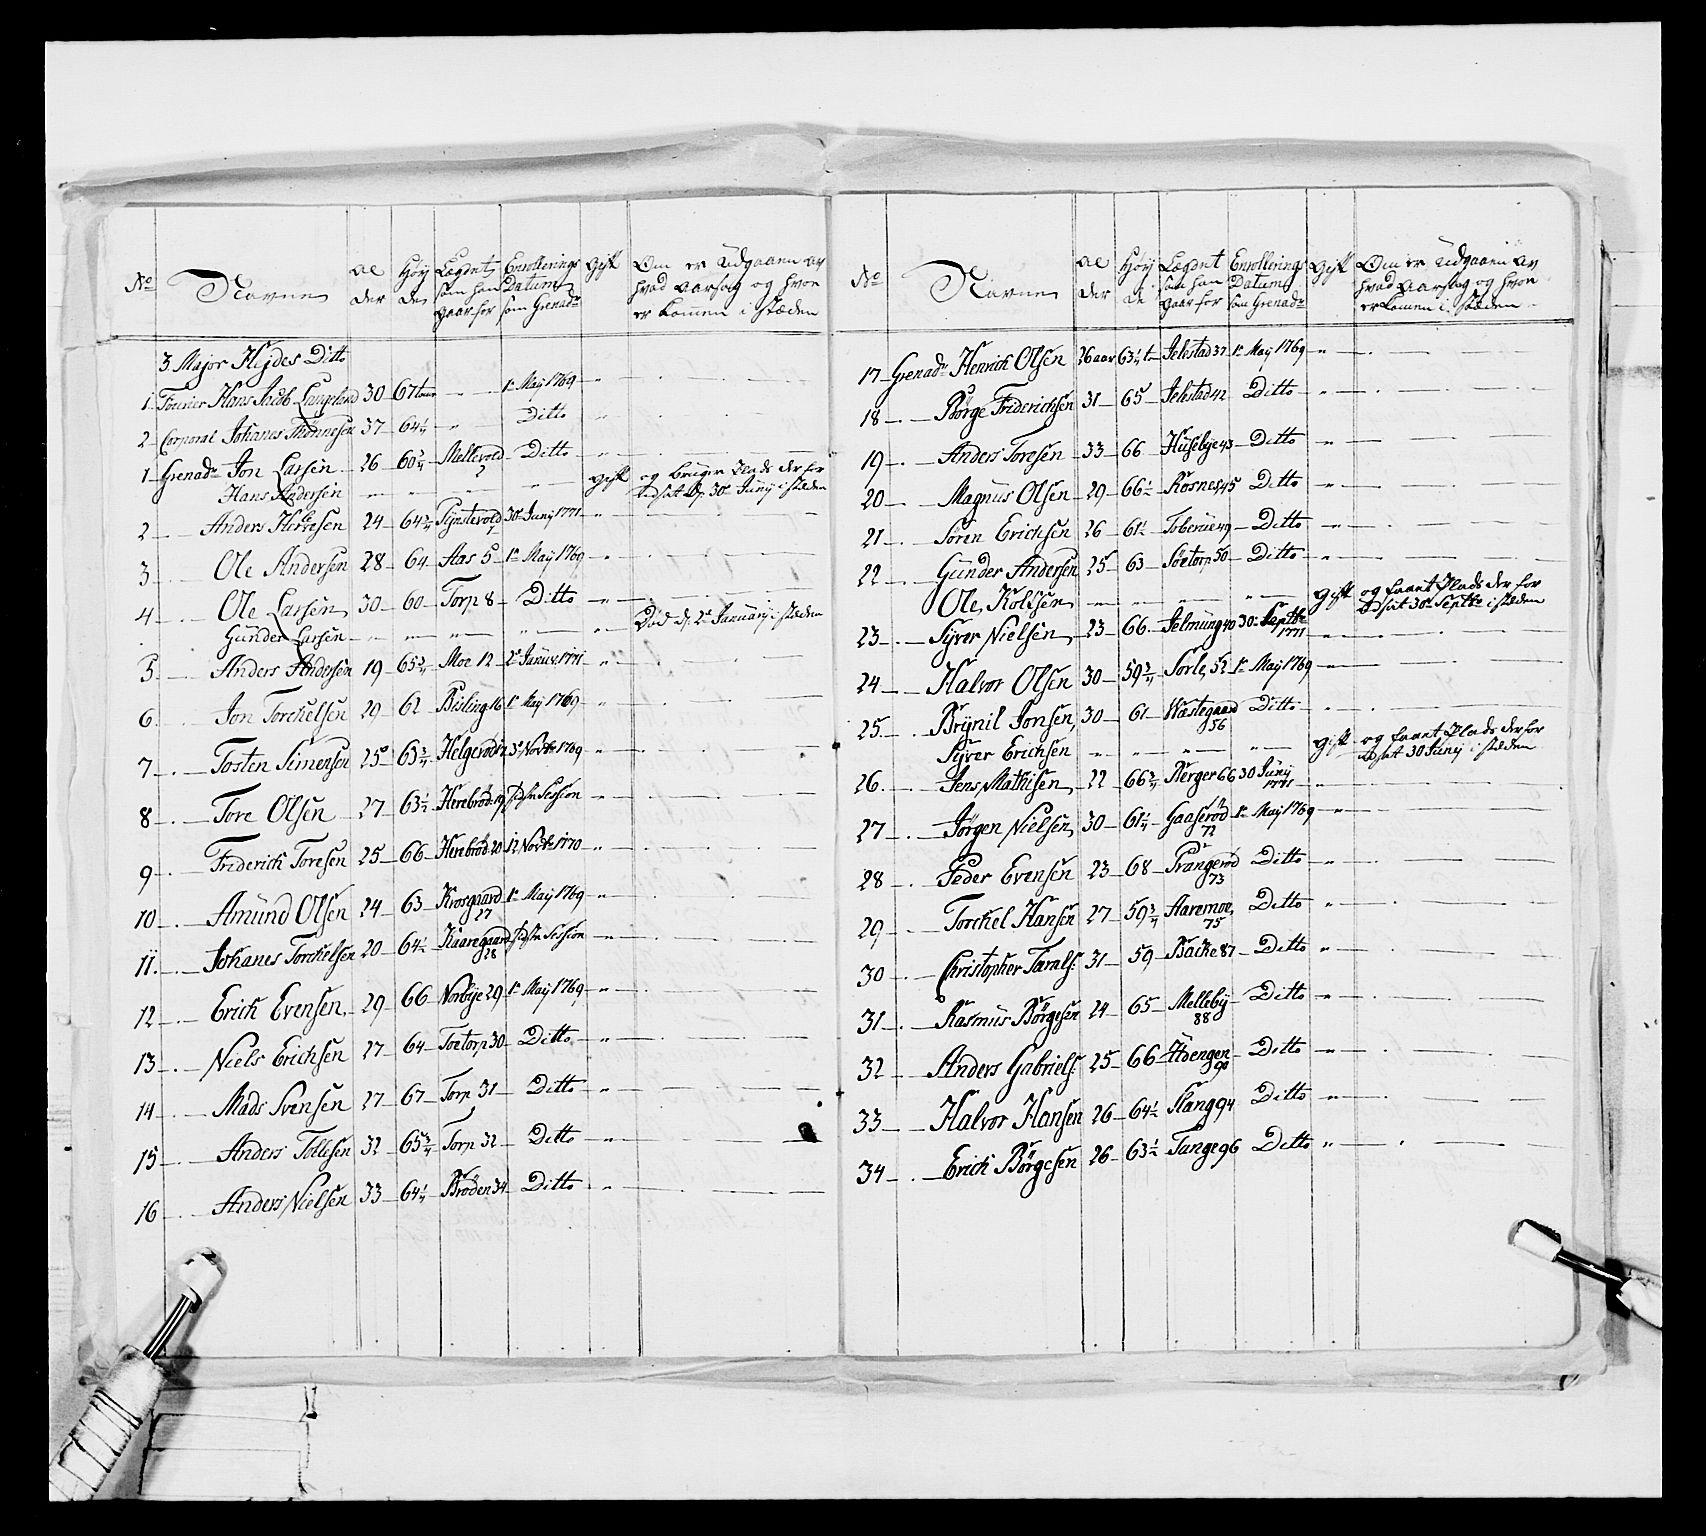 No Navne Al der Höy de Lægdet som han gaar for Enrollerings Datum som Grenadr Gift Om er Udgaaen av hvad aarsag og hvor er komen i stæden
3 Major Heydes Ditto
1 Fourier Hans Jacob Langeland 30 67 tom 1e May 1769
2 Corporal Johanes Thönnesen 37 64¼ Ditto
1 Grenadr Jon Larsen 26 60¾ Mellevold 2 Ditto
Hans Andersen gift og bruger Plads derfor Udsat D. 30e Junÿ i stæden
2 Anders Halvesen 24 64¾ 30e Junÿ 1771
3 Ole Andersen 28 64 Aas 5 1e Maÿ 1769
4 Ole Larsen 30 60 Torp 8 Ditto
Gunder Larsen Död d. 2e Januarÿ i stæden
5 Anders Andersen 19 65¾ Moe 12 2e Januv. 1771
6 Jon Torckelsen 29 62 Bisling 16 1e Maÿ 1769
7 Tosten Simensen 25 63¾ Helgeröd 3e Novbr 1769
8 Tore Olsen 27 63½ Herebröd 19 sidste Session
9 Friderich Toresen 25 66 Herebröd 20 12 Novbr 1770
10 Amünd Olsen 24 63 Krosgaard 27 1e Maÿ 1769
11 Johanes Torckelsen 20 64½ Kaaregaard 28 sidste Session
12 Erich Evensen 29 66 Norbÿe 29 1e Maÿ 1769
13 Niels Erichsen 27 64 Toetorp 30 Ditto
14 Mads Svensen 27 67 Torp 31 Ditto
15 Anders Tollesen 32 65¾ Torp 32 Ditto
16 Anders Nielsen 33 64¼ Bröden 34 Ditto
No Navne Al der Höy de Lægdet som han gaar for Enrollerings Datum som Grenadr Gift Om er Udgaaen av hvad aarsag og hvor er komen i stæden
17 Grenadr Henrich Olsen 26 aar 63¼ to Jelestad 37 1e Maÿ 1769
18 Börge Friderichsen 31 65 Jelestad 42 Ditto
19 Anders Toresen 33 66 Husebye 43 Ditto
20 Magnus Olsen 29 66½ Rosnes 45 Ditto
21 Sören Erichsen 26 61½ Toberüe 49 Ditto
22 Günder Andersen 25 63 Söetorp 50 Ditto
Ole Kolssen gift og faaet Plads derfor Udsat 30e Septbr i stæden
23 Syver Nielsen 23 66 Jelmüng 40 30e Septbr 1771
24 Halvor Olsen 30 59¾ Sorle 52 1e Maÿ 1769
25 Brÿnil Jonsen 30 61 Wæstegaard 56 Ditto
Syver Erichsen gift og faaet Plads derfor Udsat 30 Junÿ i stæden
26 Jens Mathisen 22 66¾ Berger 66 30 Junÿ 1771
27 Jörgen Nielsen 30 61¼ Gaaseröd 72 1e Maÿ 1769
28 Peder Evensen 23 68 Prangeröd 73 Ditto
29 Torckel Hansen 27 59¾ Aaremoe 75 Ditto
30 Christopher Tarals: 31 59 Backe 87 Ditto
31 Rasmus Börgesen 24 65 Mellebÿ 88 Ditto
32 Anders Gabriels: 25 66 90 Ditto
33 Halvor Hansen 26 64½ Slang 94 Ditto
34 Erich Börgesen 26 63½ Tange 96 Ditto